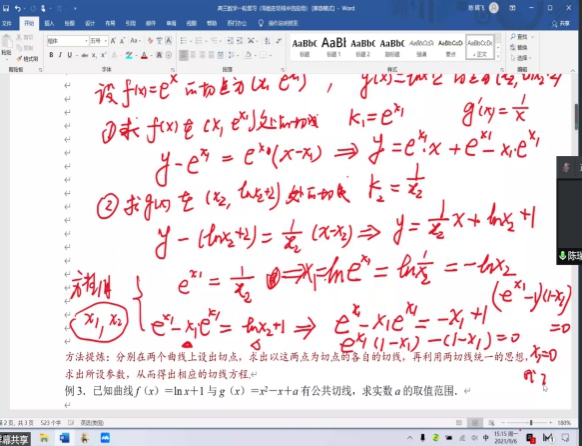 高三数学一轮复习（导数在切线中的应用）[兼容模式] - Word
文件 开始 插入 设计 布局 引用 邮件 审阅 视图 帮助
共享
AaBbC AaBl AaBbC AaBbC AaBbCcDc AaBbCcDc AaBbCcDc
标题 标题 1 标题 2 副标题 强调 要点 正文
查找
替换
选择
剪贴板 字体 段落 样式 编辑
设 f(x)=e^x 的切点为 (x₁, e^{x₁}) , g(x)=lnx+2 的切点 (x₂, lnx₂+2)
① 求 f(x) 在 (x₁, e^{x₁}) 处的切线 k₁=e^{x₁} g'(x)=1/x
y-e^{x₁}=e^{x₁}(x-x₁) ⇒ y=e^{x₁}·x+e^{x₁}-x₁e^{x₁}
② 求 g(x) 在 (x₂, lnx₂+2) 处的切线 k₂=1/x₂
y-(lnx₂+2)=1/x₂(x-x₂) ⇒ y=1/x₂ x+lnx₂+1
方程组 x₁, x₂
e^{x₁}=1/x₂ ⇒ x₁=lne^{x₁}=ln 1/x₂=-lnx₂
e^{x₁}-x₁e^{x₁}=lnx₂+1 ⇒ e^{x₁}-x₁e^{x₁}=-x₁+1
(e^{x₁}-1)(1-x₁)=0
e^{x₁}(1-x₁)-(1-x₁)=0
x₁=0
方法提炼：分别在两个曲线上设出切点，求出以这两点为切点的各自的切线，再利用两切线统一的思想，
求出所设参数，从而得出相应的切线方程
例 3．已知曲线 f（x）=ln x+1 与 g（x）=x²-x+a 有公共切线，求实数 a 的取值范围．
第 2 页，共 3 页 523 个字 英语(美国)
180%
屏幕共享
15:15 周一
2021/9/6